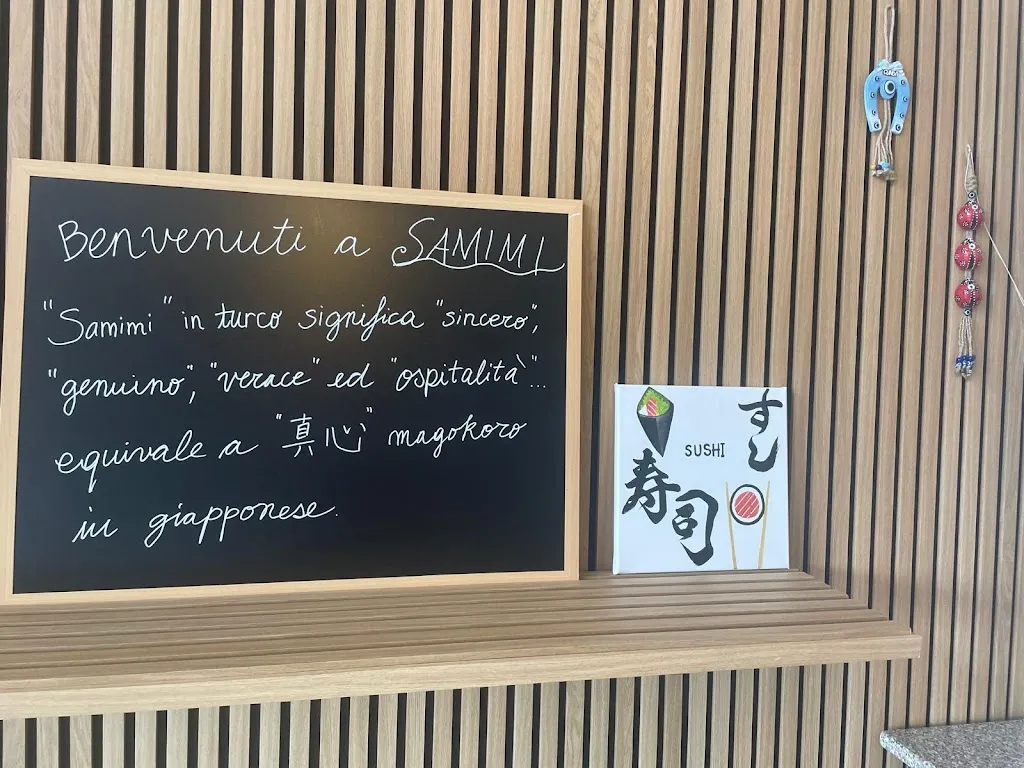 Benvenuti a SAMIMI
"Samimi" in turco significa "sincero",
"genuino", "verace" ed "ospitalità"...
equivale a "真心" magokoro
in giapponese.
すし
SUSHI
寿司